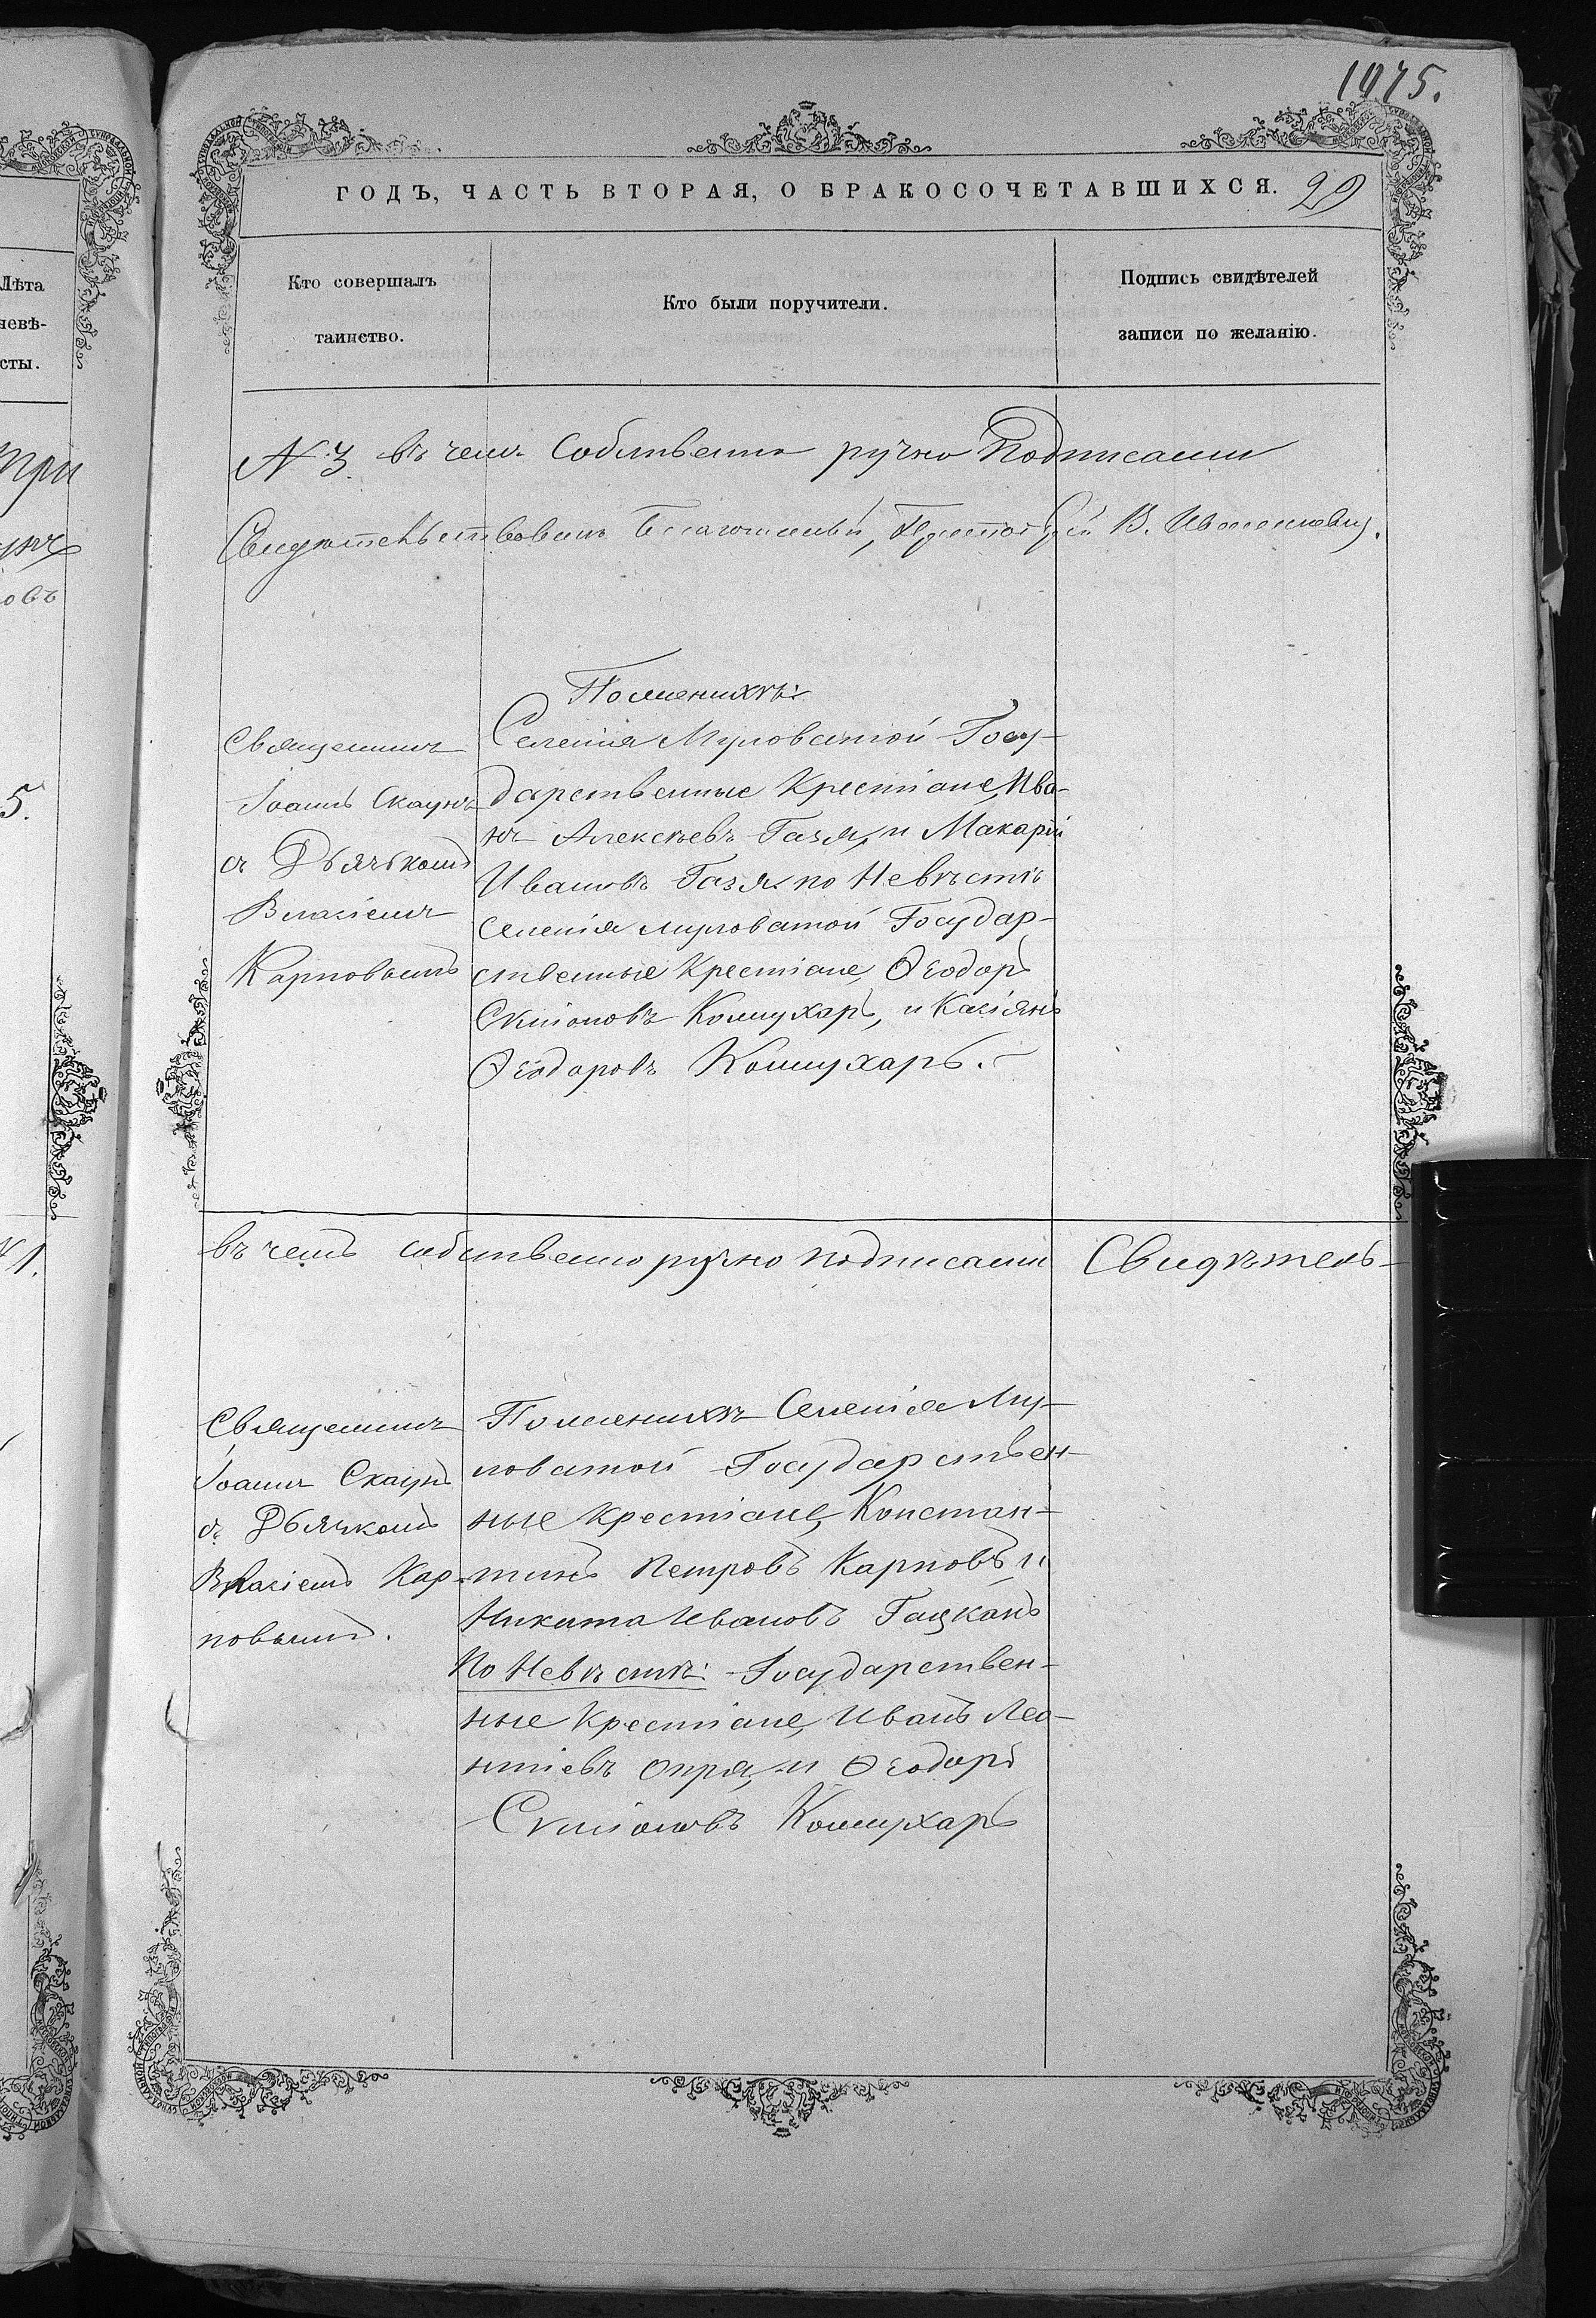 1075.
ГОДЪ, ЧАСТЬ ВТОРАЯ, О БРАКОСОЧЕТАВШИХСЯ. 29
Лѣта
невѣ-
сты.
Кто совершалъ
таинство.
Кто были поручители.
Подпись свидѣтелей
записи по желанію.
три
овъ
5.
№ 3. въ чемъ Собственно ручно Подписали
Свидѣтельствовалъ Благочинный, Протоіерей В.
Священникъ
Іоаннъ Скаунъ
съ Дьячкомъ
Власіемъ
Карповымъ
По женихѣ:
Селенія Мурловатой Госу-
дарственные Крестіане, Ива-
нъ Алексѣевъ Газя, и Макарій
Ивановъ Газя. по Невѣстѣ
Селенія мурловатой Государ-
ственные Крестіане, Ѳеодоръ
Скиіоновъ Кошухарь, и Касіянъ
Ѳеодоровъ Кошухарь.
№ 1.
въ чемъ собственно ручно подписали Свидѣтель-
Священникъ
Іоаннъ Скаунъ
съ Дьячкомъ
Власіемъ Кар-
повымъ.
По женихѣ Селенія Мур-
ловатой Государствен-
ные крестіане, Констан-
тинъ Петровъ Карповъ и
Никита Ивановъ Гацканъ
По Невѣстѣ: Государствен-
ные Крестіане, Иванъ Лео-
нтіевъ Опря, и Ѳеодоръ
Скиіоновъ Кошухарь